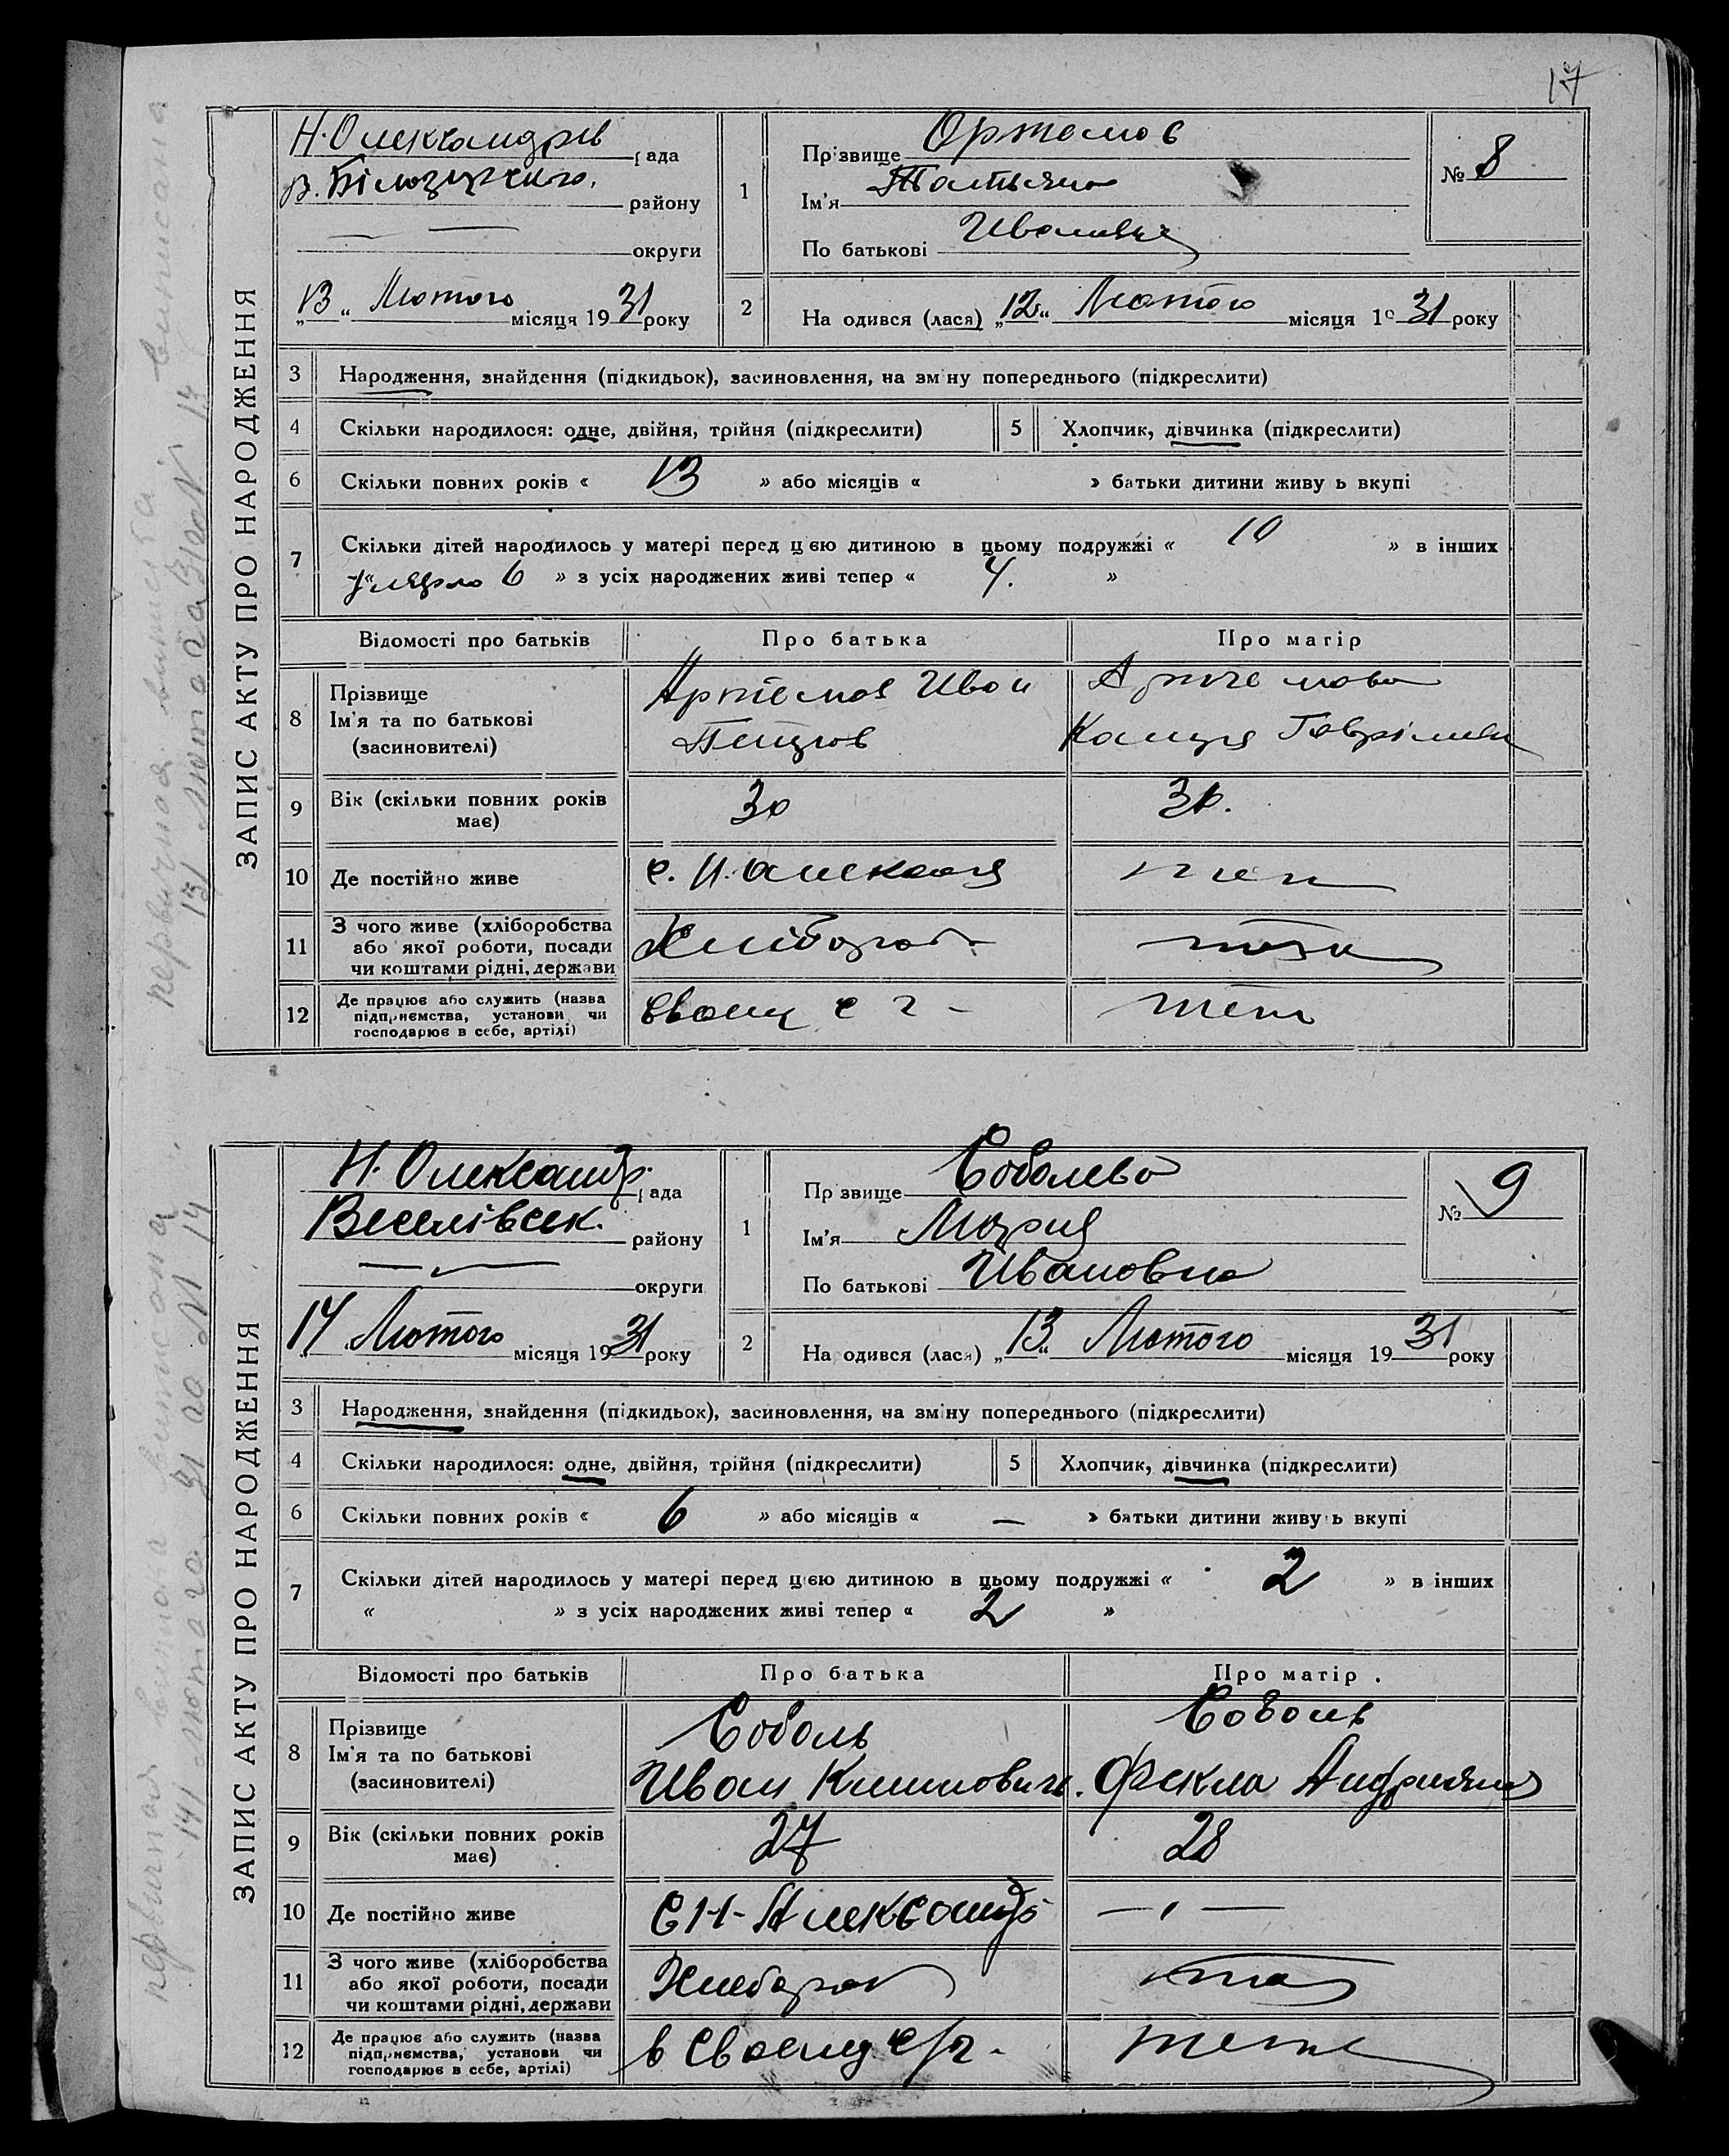 17
ЗАПИС АКТУ ПРО НАРОДЖЕННЯ
Н. Олександрів рада
В. Білозирского, району
округи
"13" Лютого місяця 1931 року
1
Прізвище Ортамов
Ім'я Татьяна
По батькові Ивановна
№ 8
2
На одився (лася) "12" Лютого місяця 19 31 року
3 Народження, знайдення (підкидьок), засиновлення, на зміну попереднього (підкреслити)
4 Скільки народилося: одне, двійня, трійня (підкреслити) 5 Хлопчик, дівчинка (підкреслити)
6 Скільки повних років « 13 » або місяців « » батьки дитини живу ь вкупі
7 Скільки дітей народилось у матері перед цією дитиною в цьому подружжі « 10 » в інших
« умерло 6 » з усіх народжених живі тепер « 4. »
Відомості про батьків Про батька Про матір
8 Прізвище
Ім'я та по батькові
(засиновителі)
Артемов Иван
Петров
Артемова
Гаврілівн
9 Вік (скільки повних років має) 30
10 Де постійно живе с. Н. Александ
11 З чого живе (хліборобства
або якої роботи, посади
чи коштами рідні, держави
Хлібороб
12 Де працює або служить (назва
підприємства, установи чи
господарює в себе, артілі)
Своему с г -
первичная выписка выписана
13/ лютого 31 № 13
ЗАПИС АКТУ ПРО НАРОДЖЕННЯ
Н. Олександр. рада
Веселівськ. району
округи
"14" Лютого місяця 1931 року
1
Пр звище Соболева
Ім'я Мария
По батькові Ивановна
№ 9
2
На одився (лася) "13" Лютого місяця 19 31 року
3 Народження, знайдення (підкидьок), засиновлення, на зміну попереднього (підкреслити)
4 Скільки народилося: одне, двійня, трійня (підкреслити) 5 Хлопчик, дівчинка (підкреслити)
6 Скільки повних років « 6 » або місяців « — » батьки дитини живу ь вкупі
7 Скільки дітей народилось у матері перед цією дитиною в цьому подружжі « 2 » в інших
« » з усіх народжених живі тепер « 2 »
Відомості про батьків Про батька Про матір
8 Прізвище
Ім'я та по батькові
(засиновителі)
Соболь
Иван Климович
Соболь
Фекла Андрияна
9 Вік (скільки повних років має) 27 28
10 Де постійно живе С Н-Александр
11 З чого живе (хліборобства
або якої роботи, посади
чи коштами рідні, держави
Хлебороб
12 Де працює або служить (назва
підприємства, установи чи
господарює в себе, артілі)
в Своему с/г.
первичная выписка выписана
14/ лютого 31 № 14